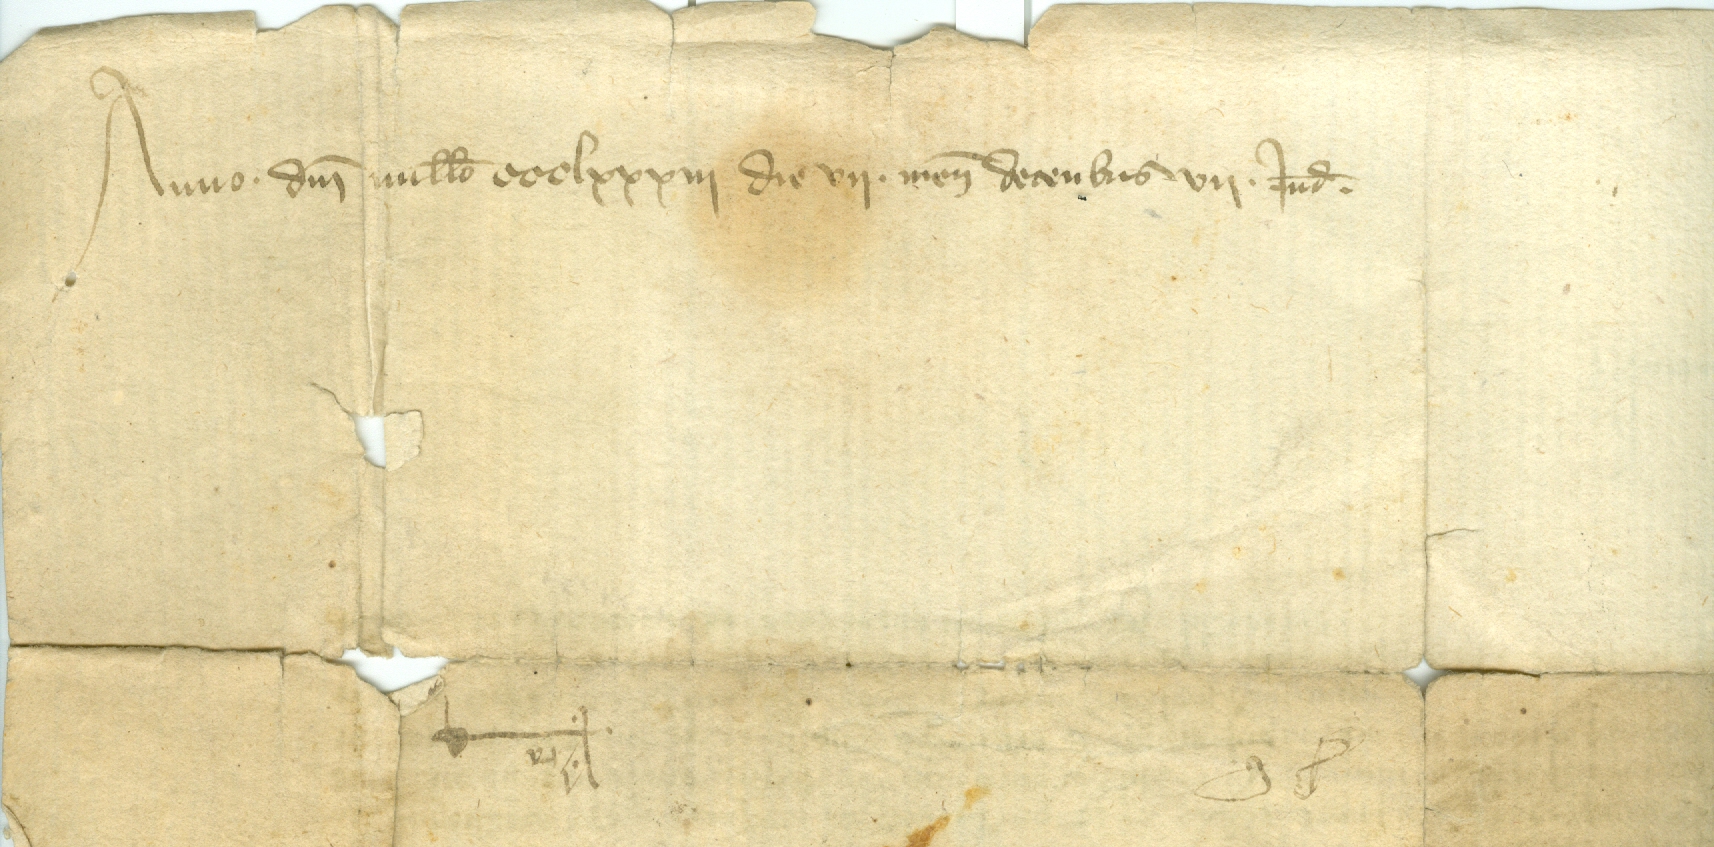 Anno · dnī millo ccclxxxiii die vii · menͫ decenbris vii · Ind ·